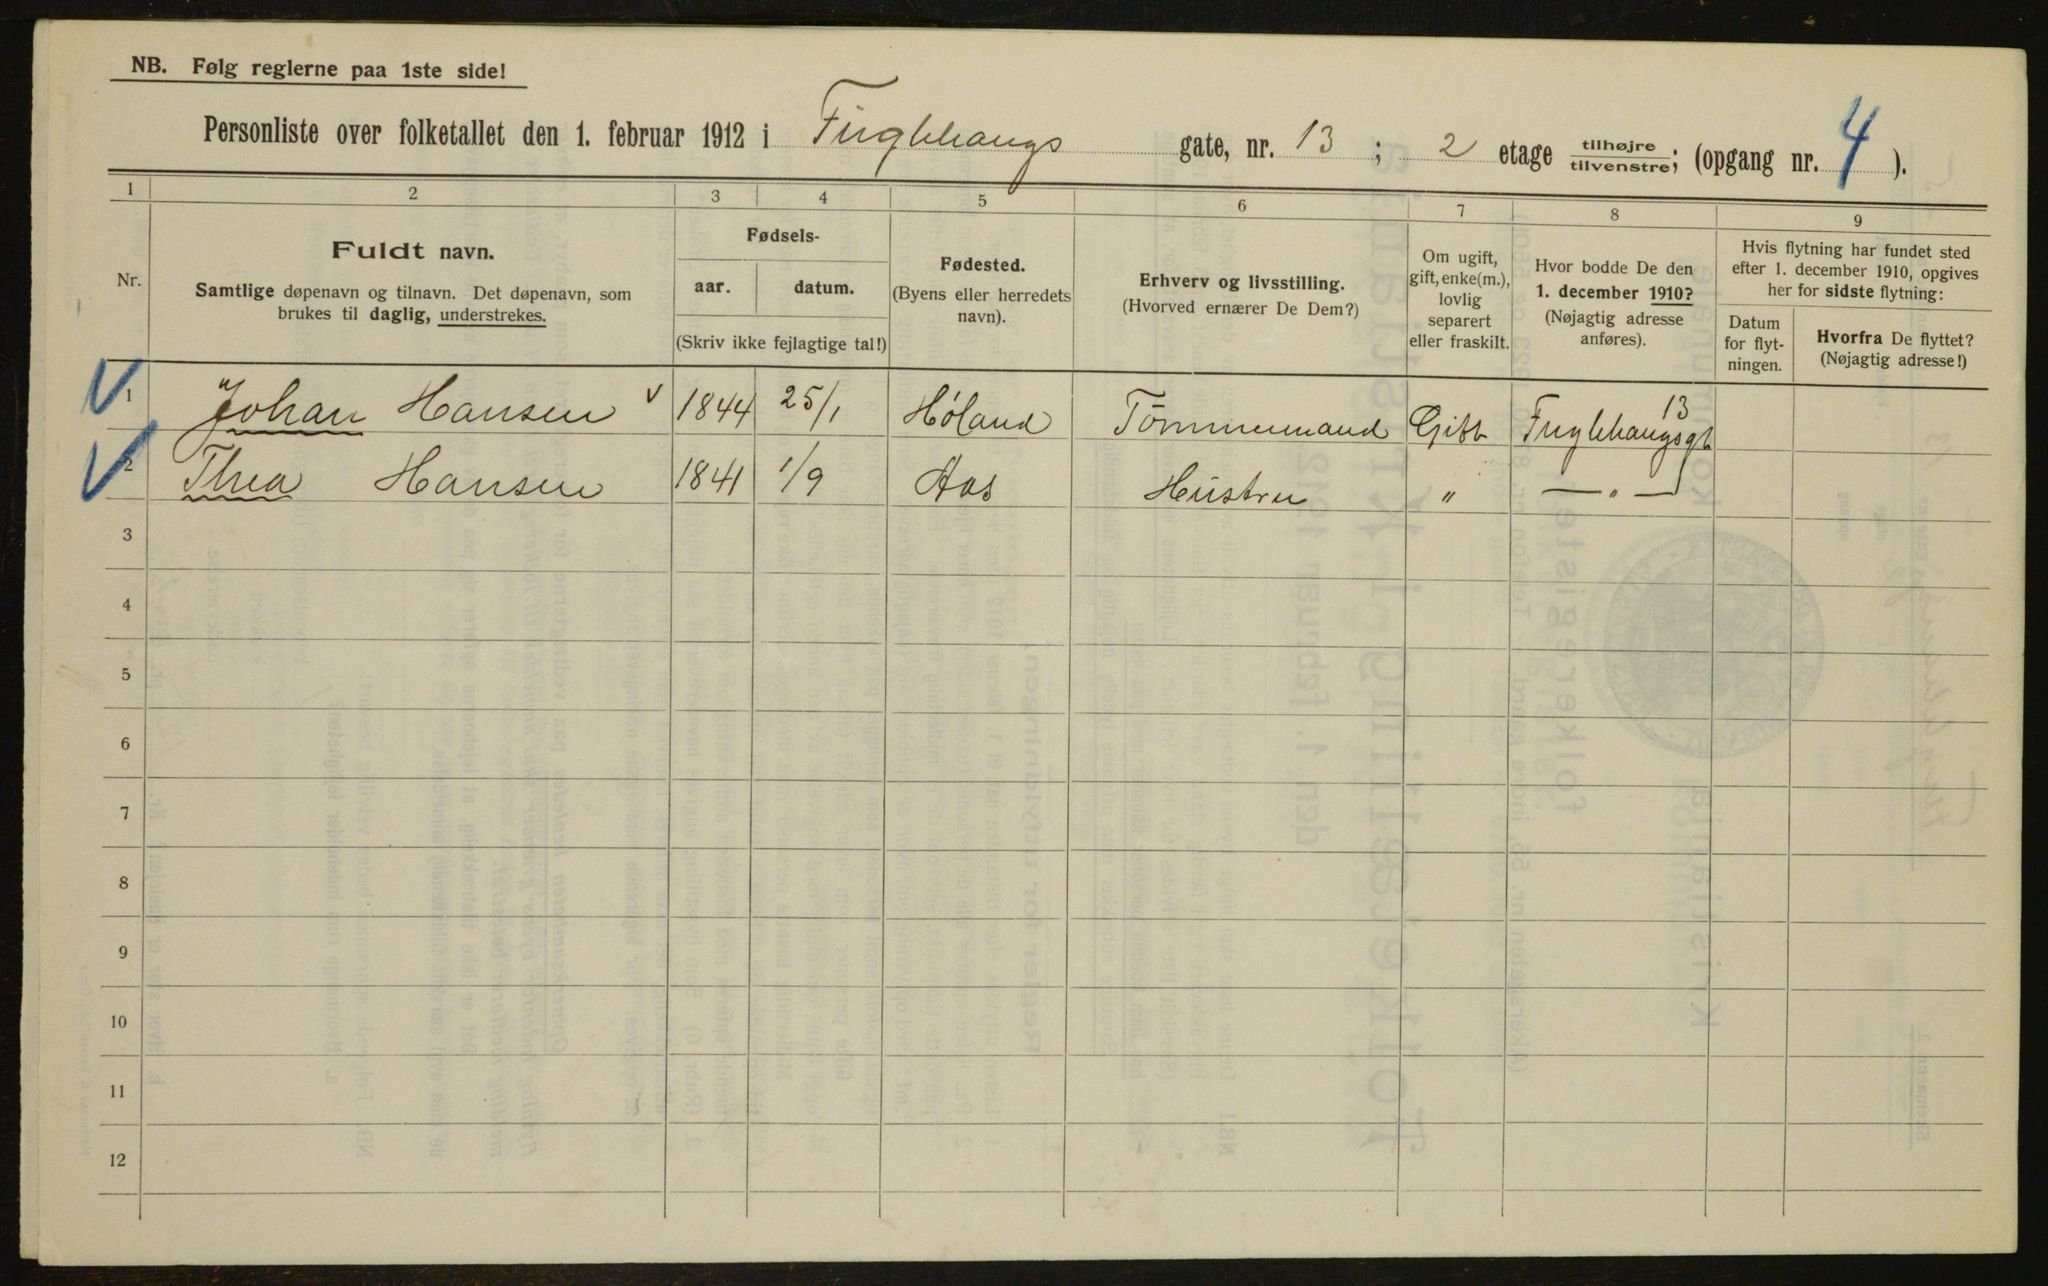 NB. Følg reglerne paa 1ste side!
Personliste over folketallet den 1. februar 1912 i Fuglehaugs gate, nr. 13 ; 2 etage tilhøjre tilvenstre; (opgang nr. 4 ).
1 2 3 4 5 6 7 8 9
Nr.
Fuldt navn.
Samtlige døpenavn og tilnavn. Det døpenavn, som
brukes til daglig, understrekes.
Fødsels-
aar. datum.
(Skriv ikke fejlagtige tal!)
Fødested.
(Byens eller herredets
navn).
Erhverv og livsstilling.
(Hvorved ernærer De Dem?)
Om ugift,
gift, enke(m.),
lovlig
separert
eller fraskilt.
Hvor bodde De den
1. december 1910?
(Nøjagtig adresse
anføres).
Hvis flytning har fundet sted
efter 1. december 1910, opgives
her for sidste flytning:
Datum
for flyt-
ningen.
Hvorfra De flyttet?
(Nøjagtig adresse!)
1 Johan Hansen v 1844 25/1 Høland Tömmermand Gift Fuglehaugsgt 13
2 Thea Hansen 1841 1/9 Aas Hustru " — " —
3
4
5
6
7
8
9
10
11
12